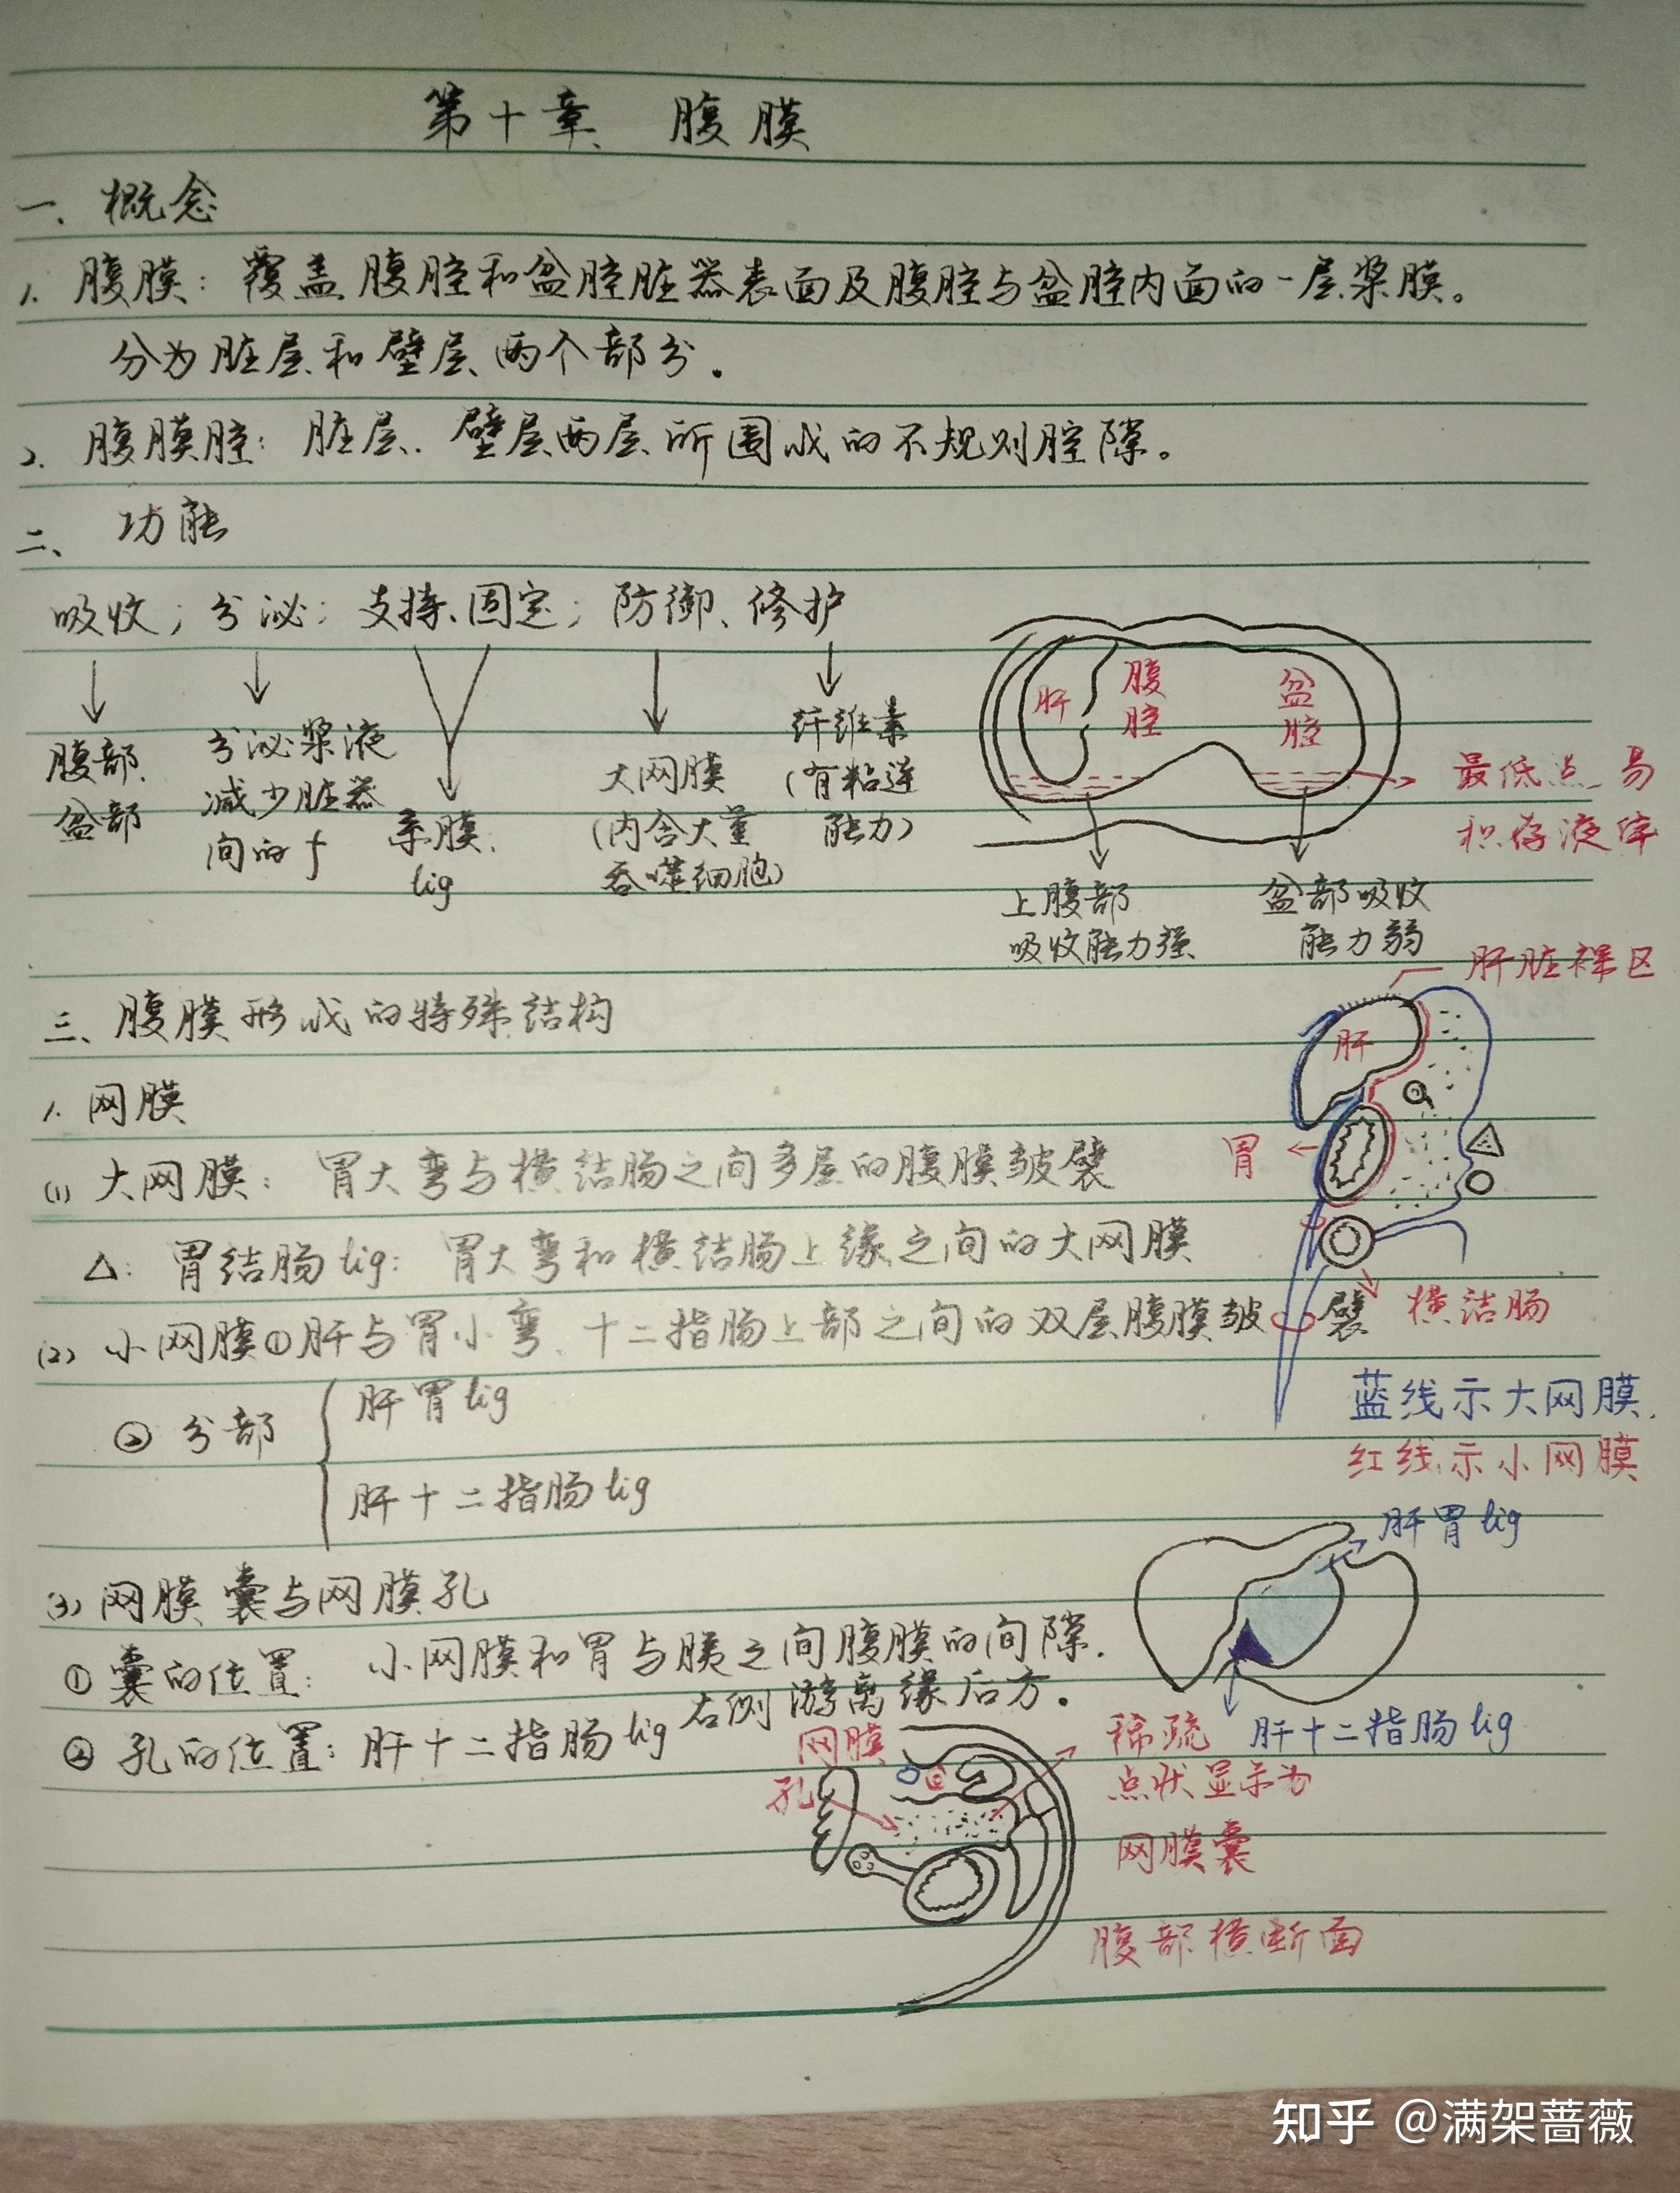 第十章 腹膜
一、概念
1. 腹膜：覆盖腹腔和盆腔脏器表面及腹腔与盆腔内面的一层浆膜。
分为脏层和壁层两个部分.
2. 腹膜腔：脏层、壁层两层所围成的不规则腔隙。
二、功能
吸收；分泌；支持、固定；防御、修护
腹部
盆部
分泌浆液
减少脏器
间的f
系膜
lig
大网膜
(内含大量
吞噬细胞)
纤维素
(有粘连
能力)
肝
腹腔
盆腔
最低点易
积存液体
上腹部
吸收能力强
盆部吸收
能力弱
三、腹膜形成的特殊结构
肝脏裸区
肝
1. 网膜
(1) 大网膜：胃大弯与横结肠之间多层的腹膜皱襞
胃
△：胃结肠lig：胃大弯和横结肠上缘之间的大网膜
(2) 小网膜①肝与胃小弯、十二指肠上部之间的双层腹膜皱襞
横结肠
蓝线示大网膜.
红线示小网膜
② 分部
肝胃lig
肝十二指肠lig
肝胃lig
肝十二指肠lig
(3) 网膜囊与网膜孔
① 囊的位置：小网膜和胃与胰之间腹膜的间隙.
② 孔的位置：肝十二指肠lig右侧游离缘后方。
网膜
孔
稀疏
点状显示为
网膜囊
腹部横断面
知乎 @满架蔷薇